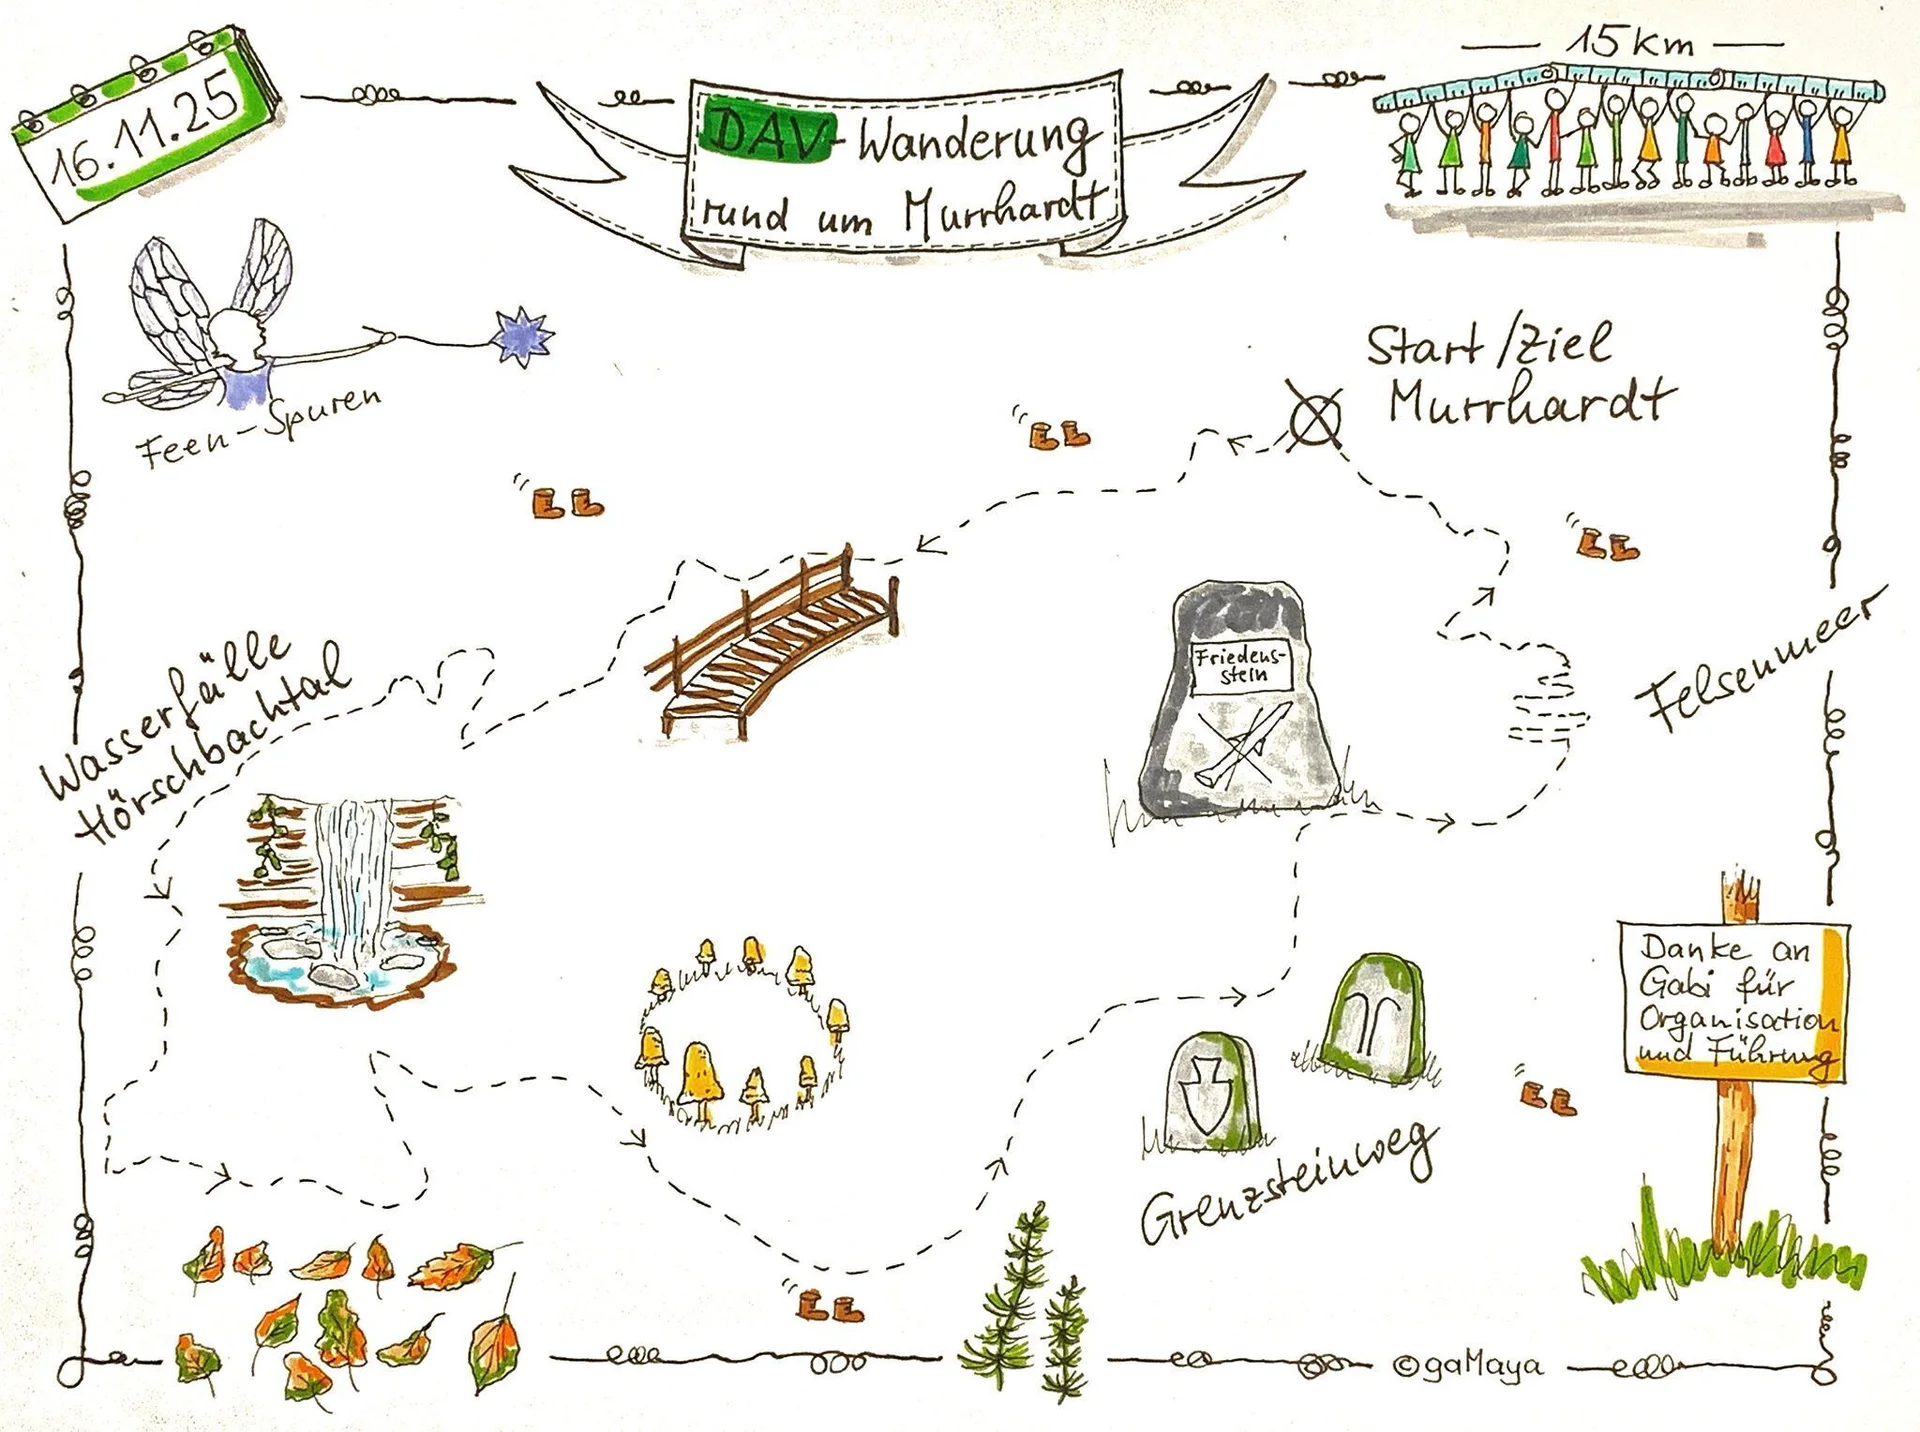 16.11.25
DAV-Wanderung
rund um Murrhardt
15 km
Feen-Spuren
Start/Ziel
Murrhardt
Wasserfälle
Hörschbachtal
Friedens-
stein
Felsenmeer
Grenzsteinweg
Danke an
Gabi für
Organisation
und Führung
©gaMaya